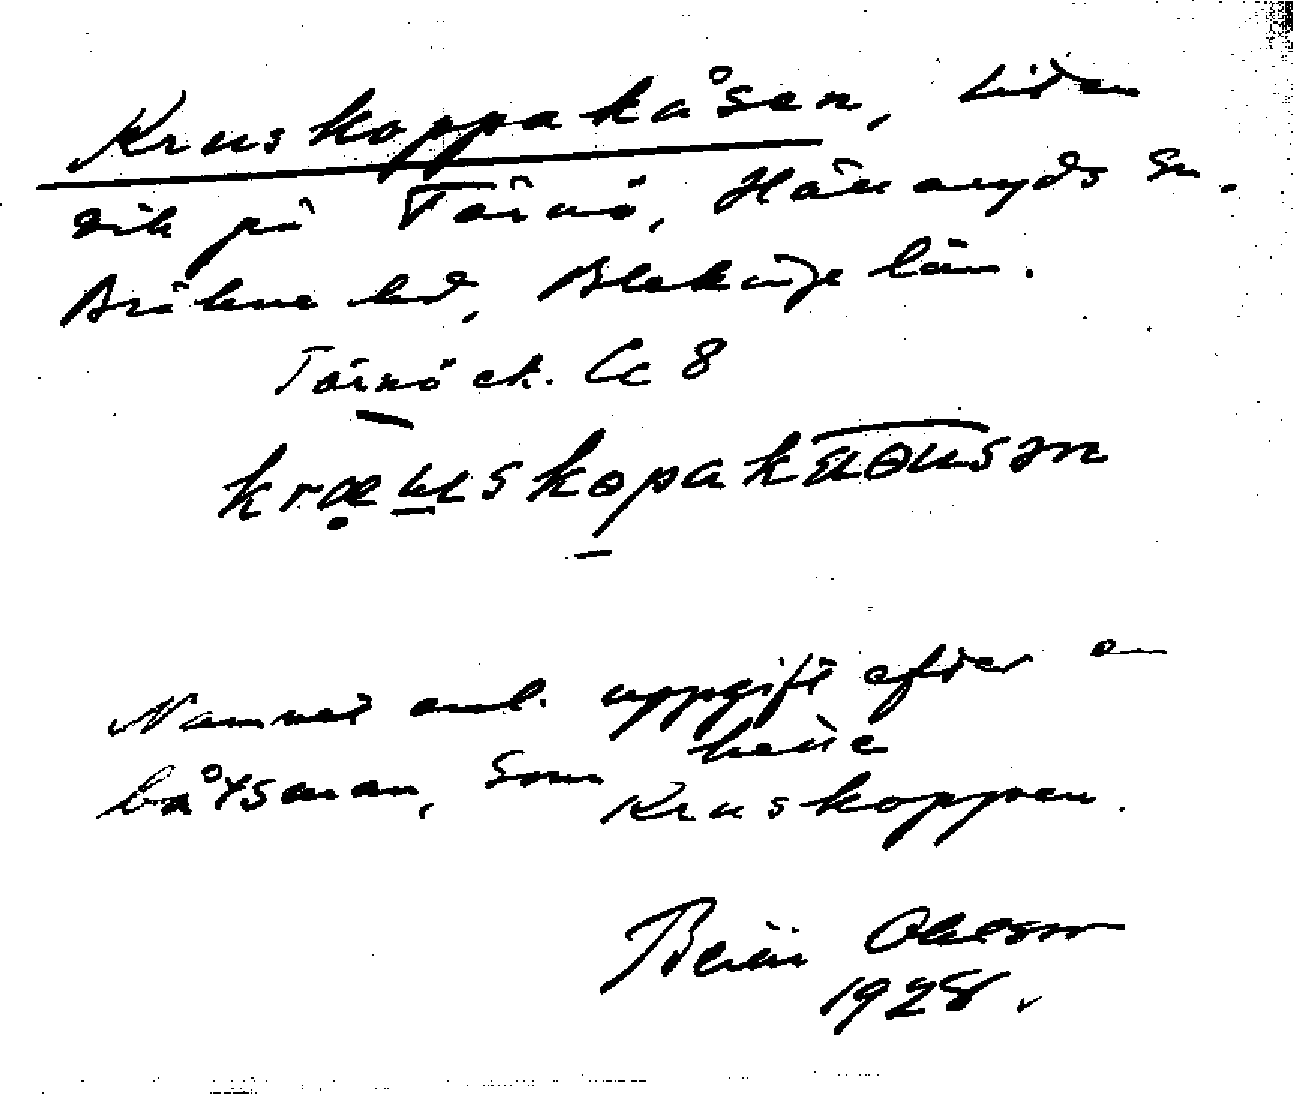 Kruskoppakåsen, liten
vik på Tärnö, Hällaryds sn.
Bräkne hd, Blekinge län.
Tärnö ek. Cc 8
kræuskopakauousən
Namnet enl. uppgift efter en
båtsman, som hette
Kruskoppen.
Olsson
1928.